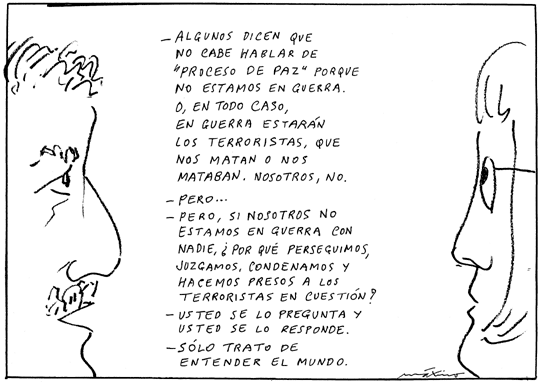 — ALGUNOS DICEN QUE
NO CABE HABLAR DE
"PROCESO DE PAZ" PORQUE
NO ESTAMOS EN GUERRA.
O, EN TODO CASO,
EN GUERRA ESTARÁN
LOS TERRORISTAS, QUE
NOS MATAN O NOS
MATABAN. NOSOTROS, NO.
— PERO...
— PERO, SI NOSOTROS NO
ESTAMOS EN GUERRA CON
NADIE, ¿POR QUÉ PERSEGUIMOS,
JUZGAMOS, CONDENAMOS Y
HACEMOS PRESOS A LOS
TERRORISTAS EN CUESTIÓN?
— USTED SE LO PREGUNTA Y
USTED SE LO RESPONDE.
— SÓLO TRATO DE
ENTENDER EL MUNDO.
máximo